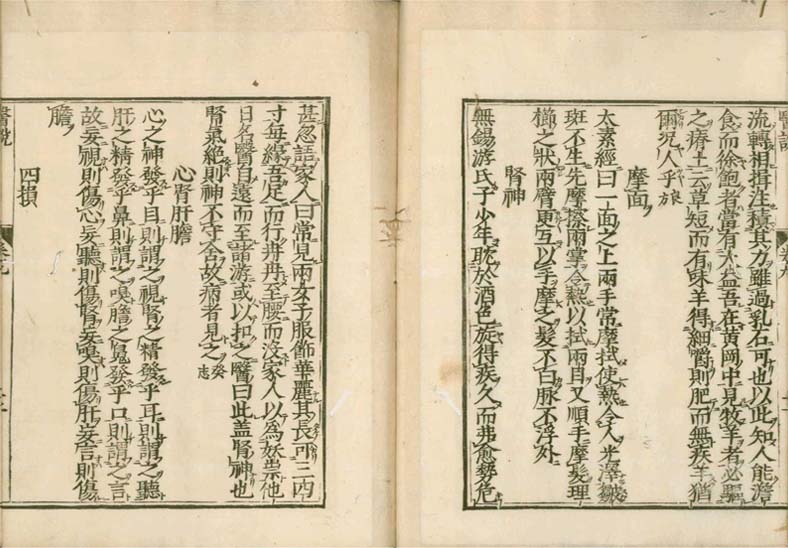 流轉相揖注積其力雖過乳石可也以此知人能澹
食而徐飽者當有大益吾在黄岡中見牧羊者必驅
之瘠土云草短而有味羊得細嚼則肥而無疾羊猶
爾况人乎
摩面
太素經曰一面之上兩手常摩拭使熱令人光澤皺
斑不生先摩擦兩掌令熱以拭兩目又順手摩髮理
櫛之狀兩臂更互以手摩之髮不白脉不浮外
腎神
無錫游氏子少年耽於酒色旋得疾久而弗愈勢危
甚忽語家人曰常見兩女子服飾華麗其長可三四
寸每緣吾足而行冉冉至腰而没家人以為妖祟他
日名醫自遠而至諸游或以扣之醫曰此蓋腎神也
腎氣絶則神不守舍故病者見之
癸志
心腎肝膽
心之神發乎目則謂之視腎之精發乎耳則謂之聽
肝之精發乎鼻則謂之嗅膽之魂發乎口則謂之言
故妄視則傷心妄聽則傷腎妄嗅則傷肝妄言則傷
膽
四損
醫説